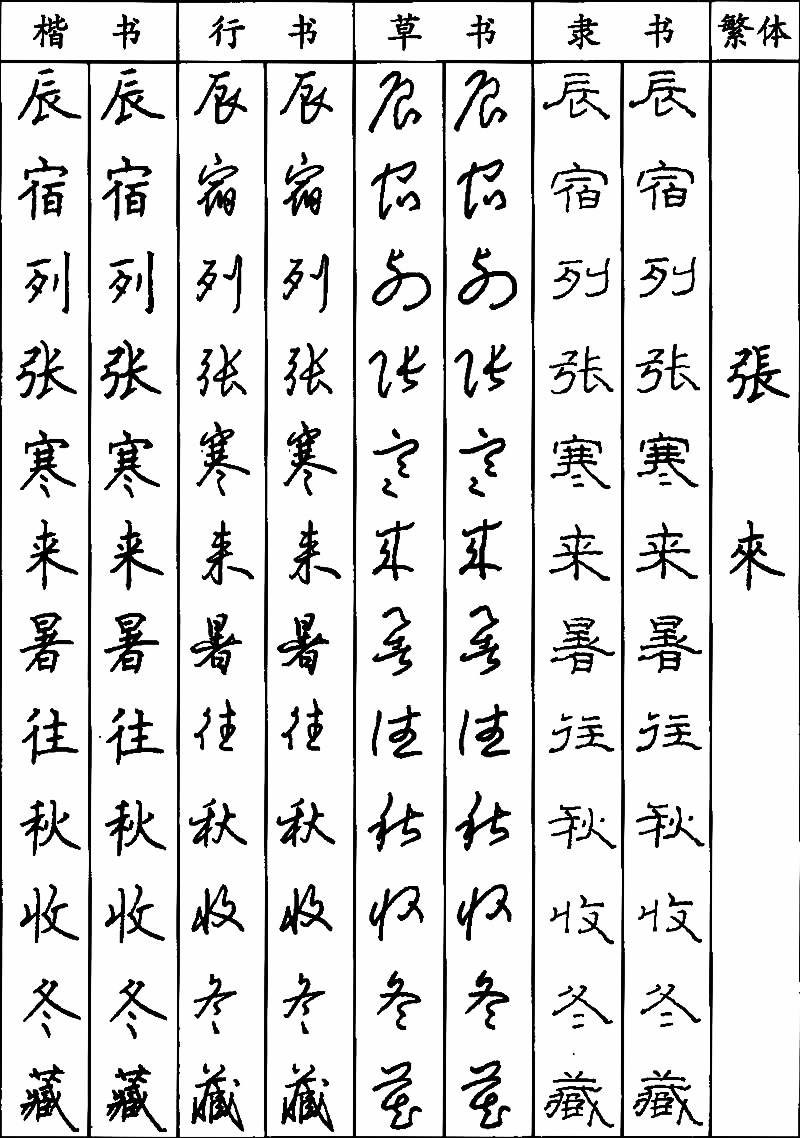 楷书 行书 草书 隶书 繁体
辰 辰 辰 辰 辰 辰 辰 辰
宿 宿 宿 宿 宿 宿 宿 宿
列 列 列 列 列 列 列 列
张 张 张 张 张 张 张 张 張
寒 寒 寒 寒 寒 寒 寒 寒
来 来 来 来 来 来 来 来 來
暑 暑 暑 暑 暑 暑 暑 暑
往 往 往 往 往 往 往 往
秋 秋 秋 秋 秋 秋 秋 秋
收 收 收 收 收 收 收 收
冬 冬 冬 冬 冬 冬 冬 冬
藏 藏 藏 藏 藏 藏 藏 藏